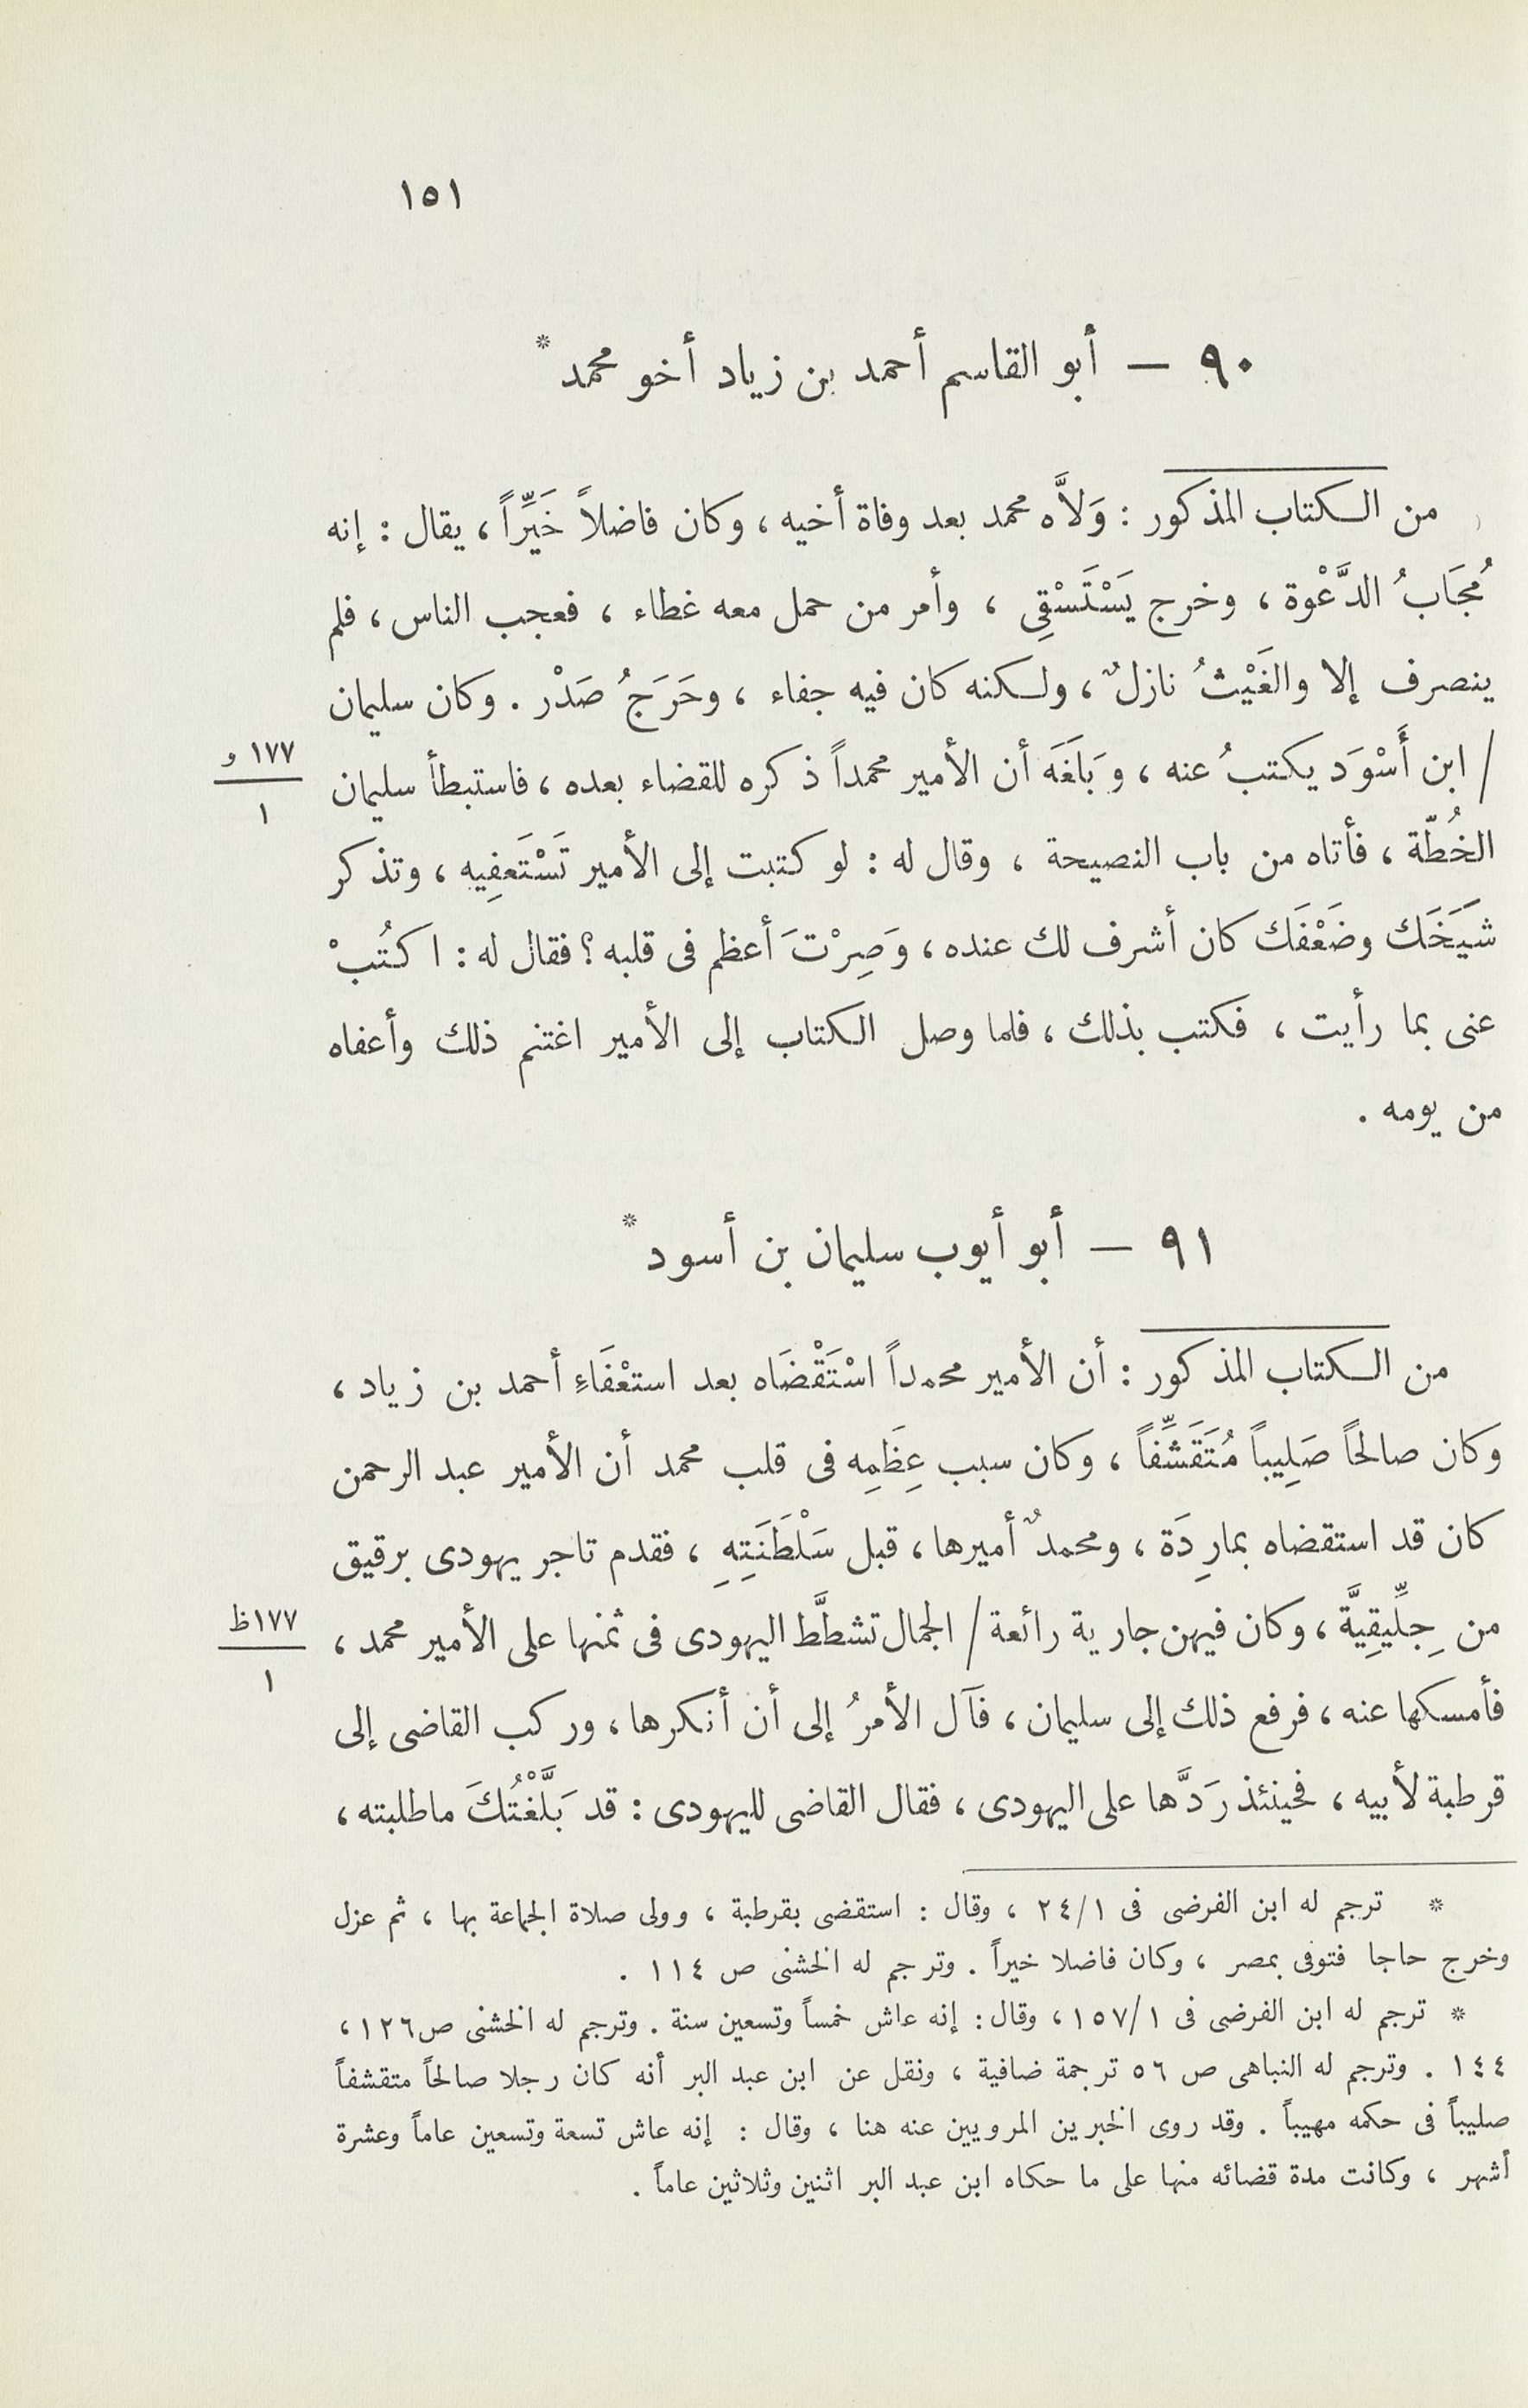 ١٥١
٩٠ — أبو القاسم أحمد بن زياد أخو محمد *
من الكتاب المذكور : وَلاَّه محمد بعد وفاة أخيه ، وكان فاضلاً خَيِّراً ، يقال : إنه
مُجَابُ الدَّعْوة ، وخرج يَسْتَسْقِى ، وأمر من حمل معه غطاء ، فعجب الناس ، فلم
ينصرف إلا والغَيْثُ نازلٌ ، ولكنه كان فيه جفاء ، وحَرَجُ صَدْر . وكان سليمان
/ ابن أَسْوَد يكتبُ عنه ، وَبَلَغَه أن الأمير محمداً ذكره للقضاء بعده ، فاستبطأ سليمان
١٧٧ و
١
الخُطّة ، فأتاه من باب النصيحة ، وقال له : لو كتبت إلى الأمير تَسْتَعفِيه ، وتذكر
شَيَخَك وضَعْفَك كان أشرف لك عنده ، وَصِرْتَ أعظم فى قلبه ؟ فقال له : اكتُبْ
عنى بما رأيت ، فكتب بذلك ، فلما وصل الكتاب إلى الأمير اغتنم ذلك وأعفاه
من يومه .
٩١ — أبو أيوب سليمان بن أسود *
من الكتاب المذكور : أن الأمير محمداً اسْتَقْضَاه بعد استعْفَاءِ أحمد بن زياد ،
وكان صالحاً صَلِيباً مُتَقَشِّفاً ، وكان سبب عِظَمِه فى قلب محمد أن الأمير عبد الرحمن
كان قد استقضاه بمارِدَة ، ومحمدٌ أميرها ، قبل سَلْطَنَتِهِ ، فقدم تاجر يهودى برقيق
من جِلِّيقِيَّة ، وكان فيهن جارية رائعة / الجمال تشطَّط اليهودى فى ثمنها على الأمير محمد ،
١٧٧ ظ
١
فأمسكها عنه ، فرفع ذلك إلى سليمان ، فآل الأمرُ إلى أن أنكرها ، وركب القاضى إلى
قرطبة لأبيه ، فحينئذ رَدَّها على اليهودى ، فقال القاضى لليهودى : قد بَلَّغْتُكَ ماطلبته ،
* ترجم له ابن الفرضى فى ٢٤/١ ، وقال : استقضى بقرطبة ، وولى صلاة الجماعة بها ، ثم عزل
وخرج حاجا فتوفى بمصر ، وكان فاضلا خيراً . وترجم له الخشنى ص ١١٤ .
* ترجم له ابن الفرضى فى ١٥٧/١ ، وقال : إنه عاش خمساً وتسعين سنة . وترجم له الخشنى ص١٢٦ ،
١٤٤ . وترجم له النباهى ص ٥٦ ترجمة ضافية ، ونقل عن ابن عبد البر أنه كان رجلا صالحاً متقشفاً
صليباً فى حكمه مهيباً . وقد روى الخبرين المرويين عنه هنا ، وقال : إنه عاش تسعة وتسعين عاماً وعشرة
أشهر ، وكانت مدة قضائه منها على ما حكاه ابن عبد البر اثنين وثلاثين عاماً .